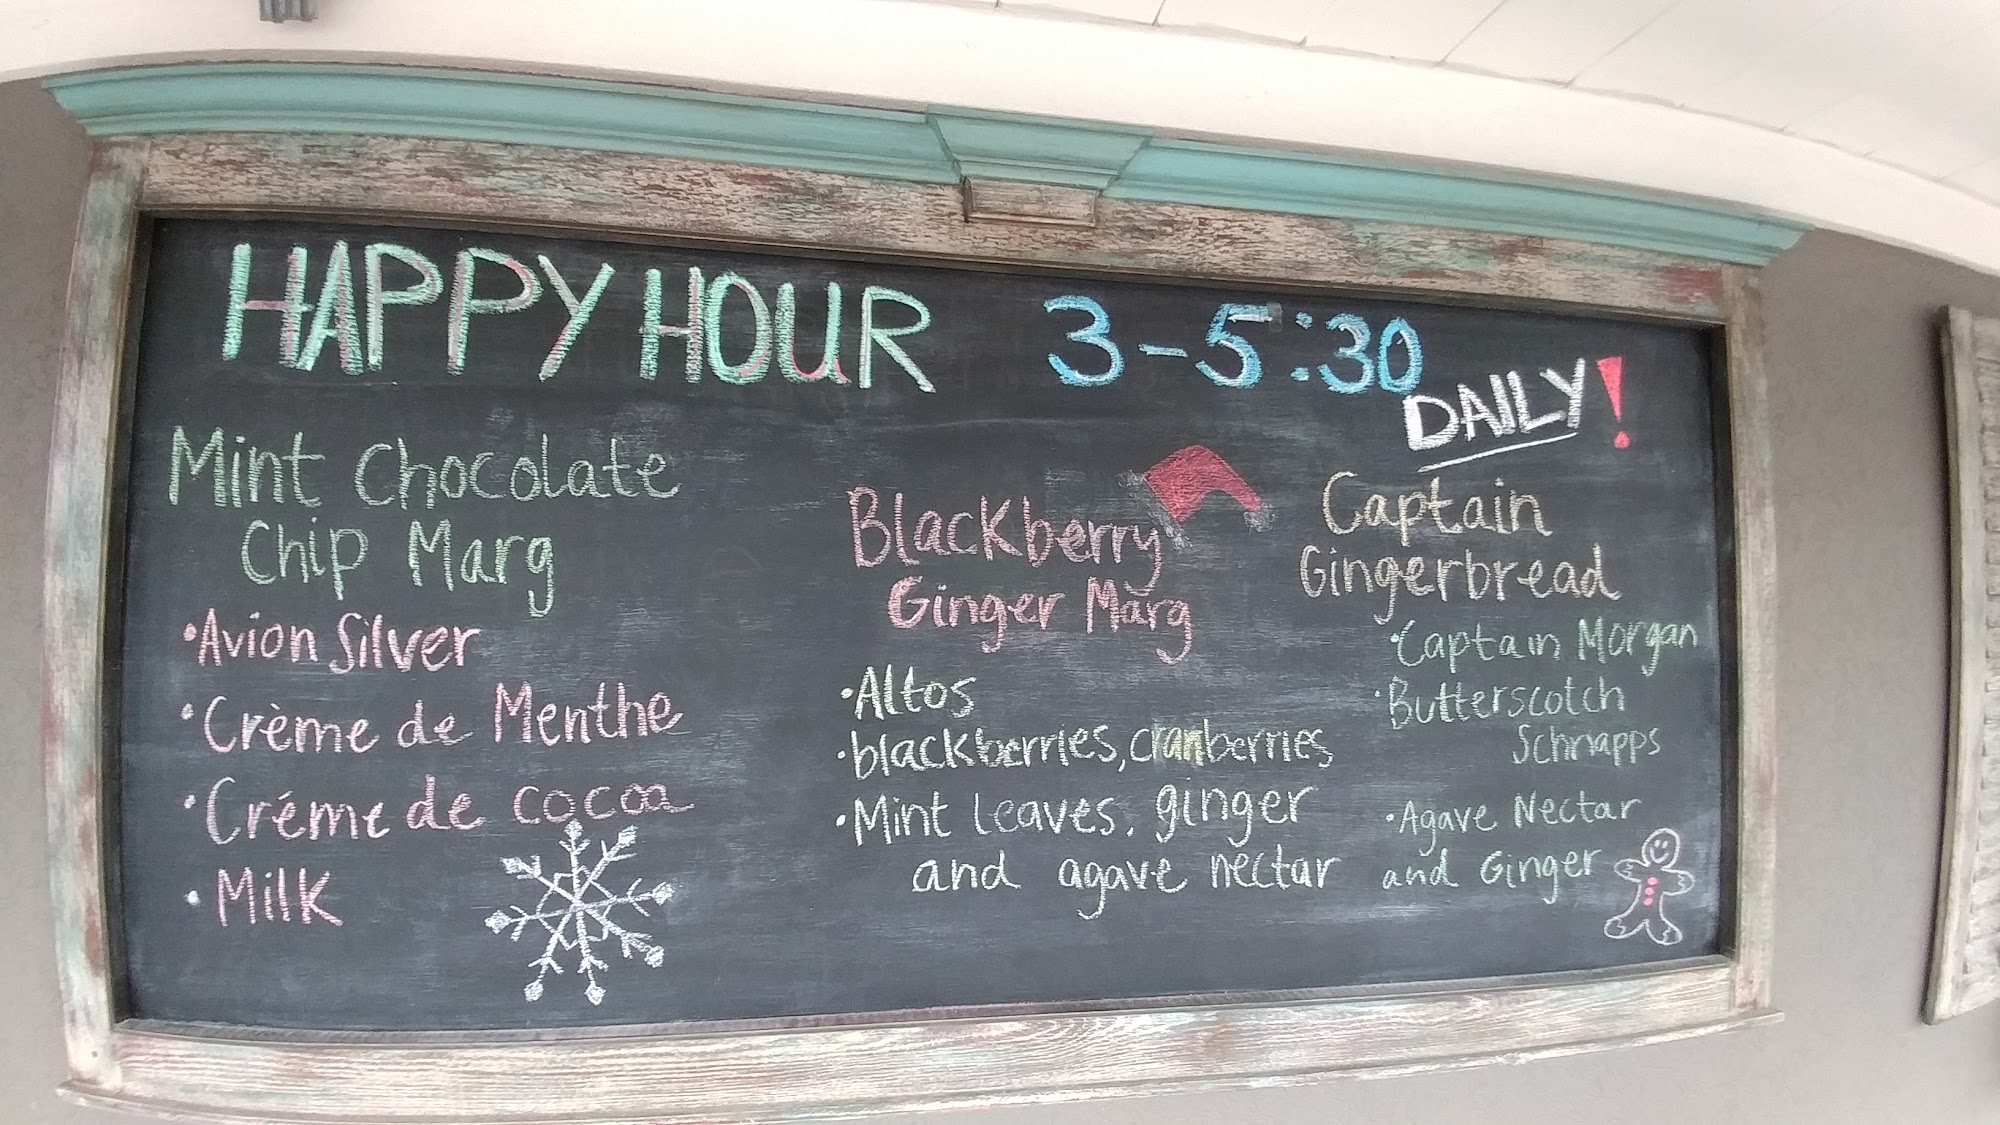 HAPPY HOUR 3-5:30
DAILY!
Mint Chocolate
Chip Marg
•Avion Silver
•Crème de Menthe
•Créme de cocoa
•Milk
Blackberry
Ginger Marg
•Altos
•blackberries, cranberries
•Mint leaves, ginger
and agave nectar
Captain
Gingerbread
•Captain Morgan
•Butterscotch
Schnapps
•Agave Nectar
and Ginger